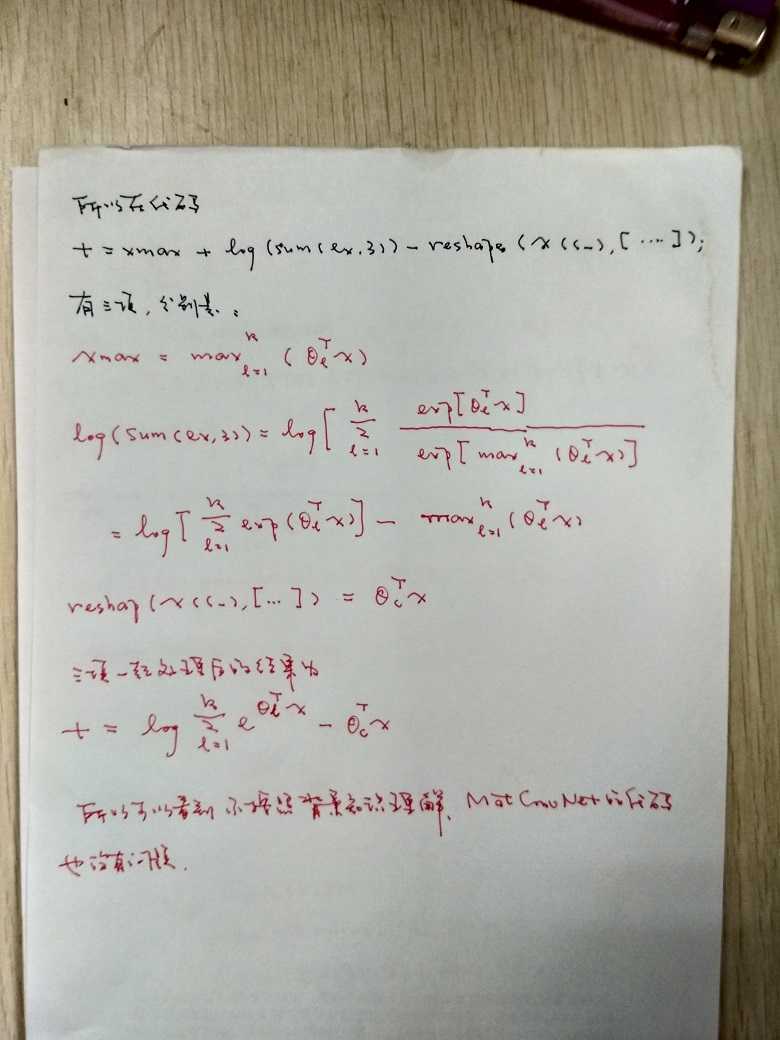 所以在代码
t = xmax + log(sum(ex,3)) - reshape(x(c_), [....]);
有三项，分别是：
xmax = max_{l=1}^{k} (θ_l^T x)
log(sum(ex,3)) = log[ ∑_{l=1}^{k} exp[θ_l^T x] / exp[max_{l=1}^{k} (θ_l^T x)]
= log[ ∑_{l=1}^{k} exp(θ_l^T x)] - max_{l=1}^{k} (θ_l^T x)
reshap(x(c_), [...]) = θ_c^T x
三项一起处理后的结果为
t = log ∑_{l=1}^{k} e^{θ_l^T x} - θ_c^T x
所以可以看到 不按照背景知识理解、MatConvNet的代码
也没有问题.